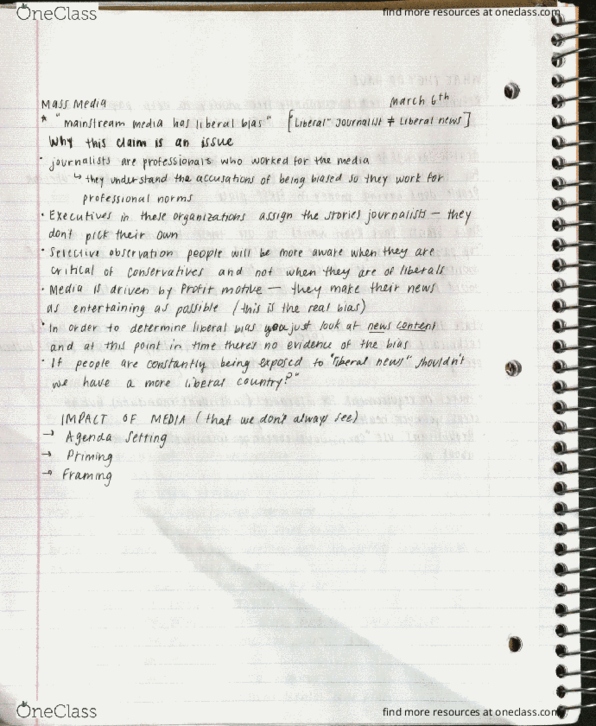 OneClass
find more resources at oneclass.com
Mass Media
March 6th
* "mainstream media has liberal bias" [Liberal Journalist ≠ Liberal news]
Why this claim is an issue
• journalists are professionals who worked for the media
↳ they understand the accusations of being biased so they work for
professional norms
• Executives in these organizations assign the stories journalists — they
dont pick their own
• Selective observation people will be more aware when they are
critical of conservatives and not when they are of liberals
• Media is driven by Profit motive — they make their news
as entertaining as possible (this is the real bias)
• In order to determine liberal bias you just look at news content
and at this point in time there's no evidence of the bias
• If people are constantly being exposed to "liberal news" shouldn't
we have a more liberal country?"
IMPACT OF MEDIA (that we don't always see)
→ Agenda Setting
→ Priming
→ Framing
OneClass
find more resources at oneclass.com